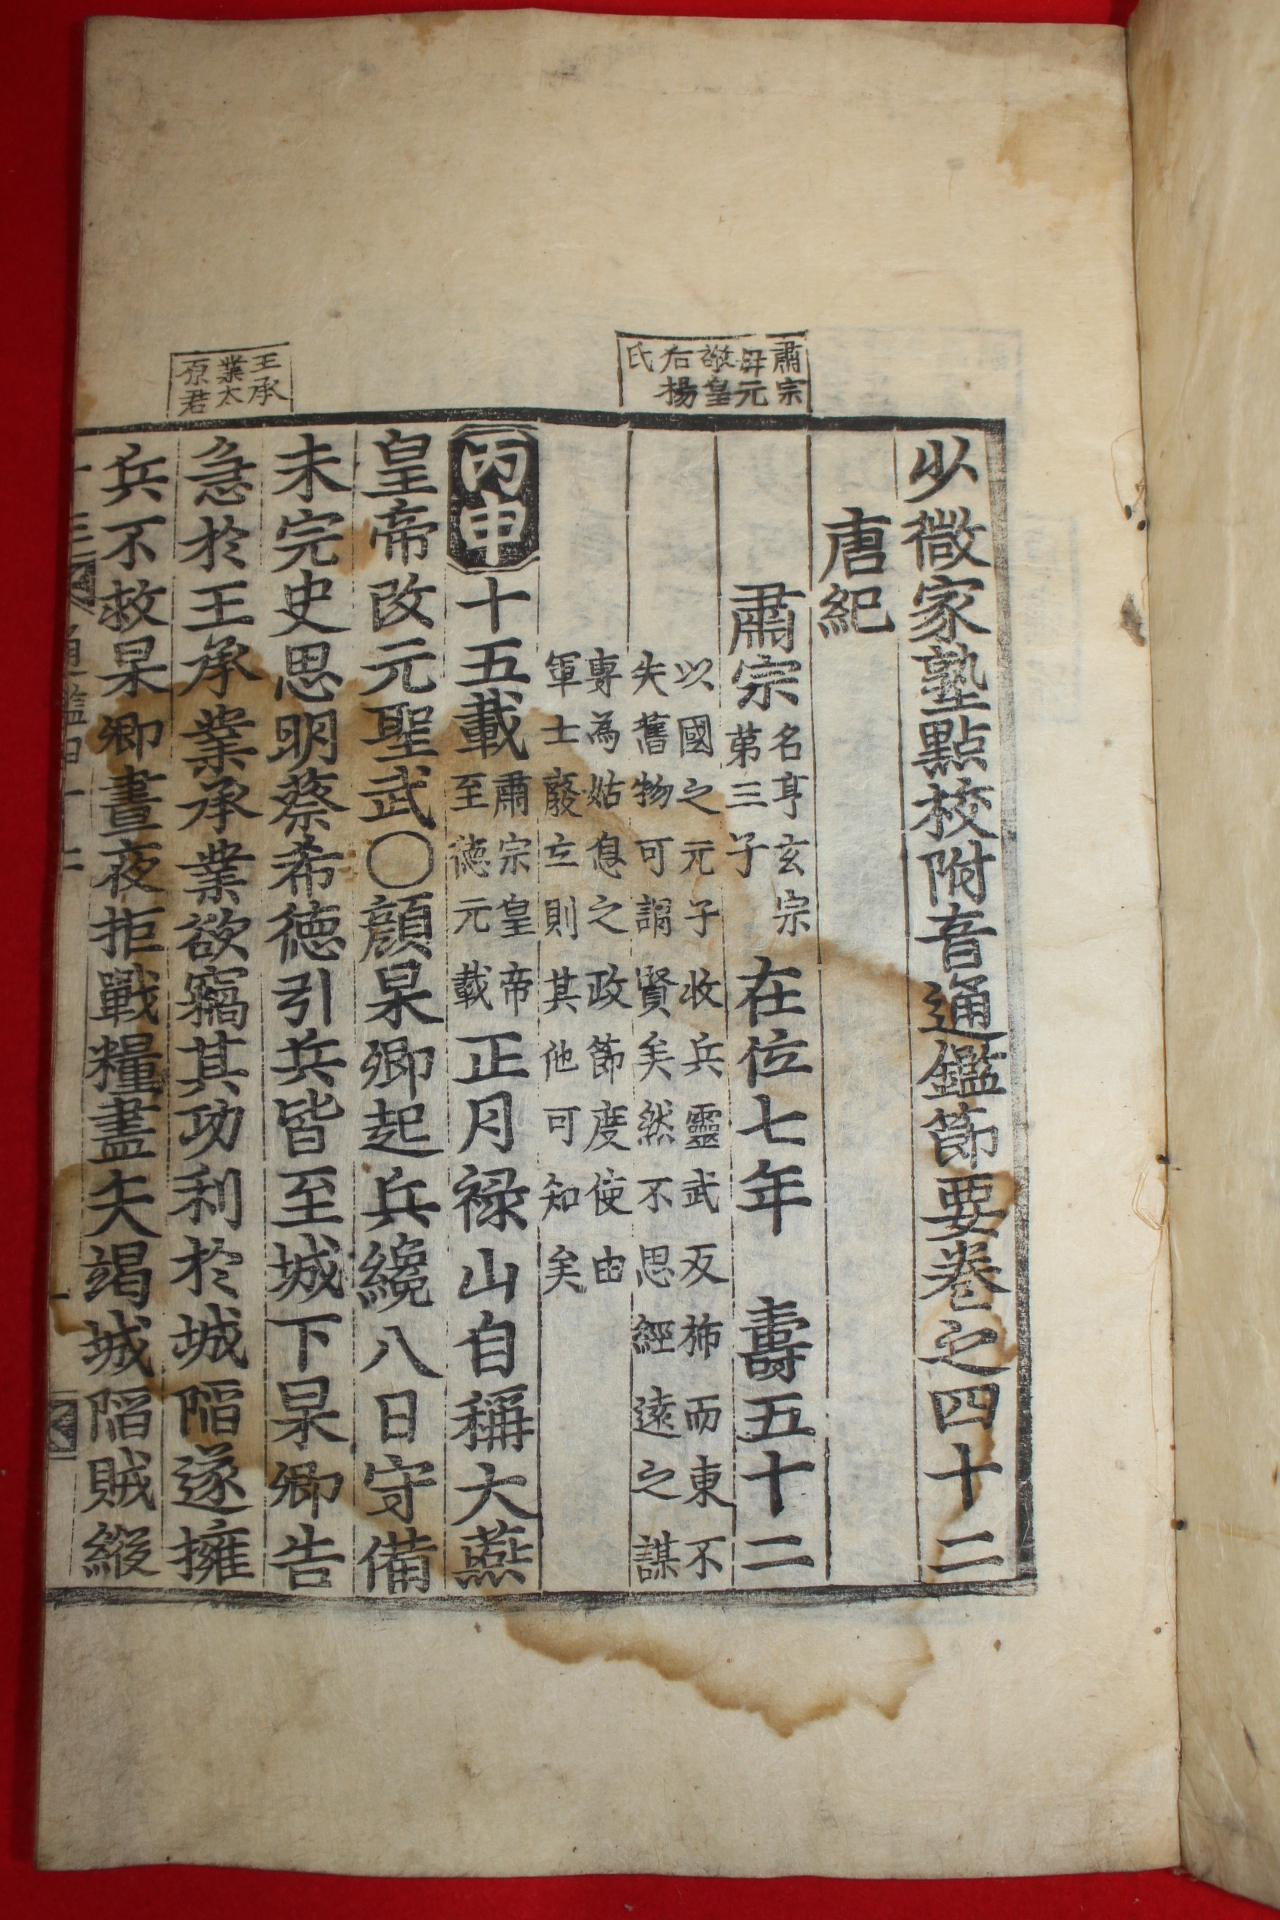 少微家塾點校附音通鑑節要卷之四十二
唐紀
肅宗
母元
獻皇
右楊
氏
肅宗
名亨玄宗
第三子
在位七年 壽五十二
以國之元子收兵靈武反斾而東不
失舊物可謂賢矣然不思經遠之謀
專為姑息之政節度使由
軍士廢立則其他可知矣
丙申
十五載
肅宗皇帝
至德元載
正月祿山自稱大燕
皇帝改元聖武○顔杲卿起兵纔八日守備
未完史思明蔡希德引兵皆至城下杲卿告
王承
業太
原君
急於王承業承業欲竊其功利於城陷遂擁
兵不救杲卿晝夜拒戰糧盡矢竭城陷賊縱